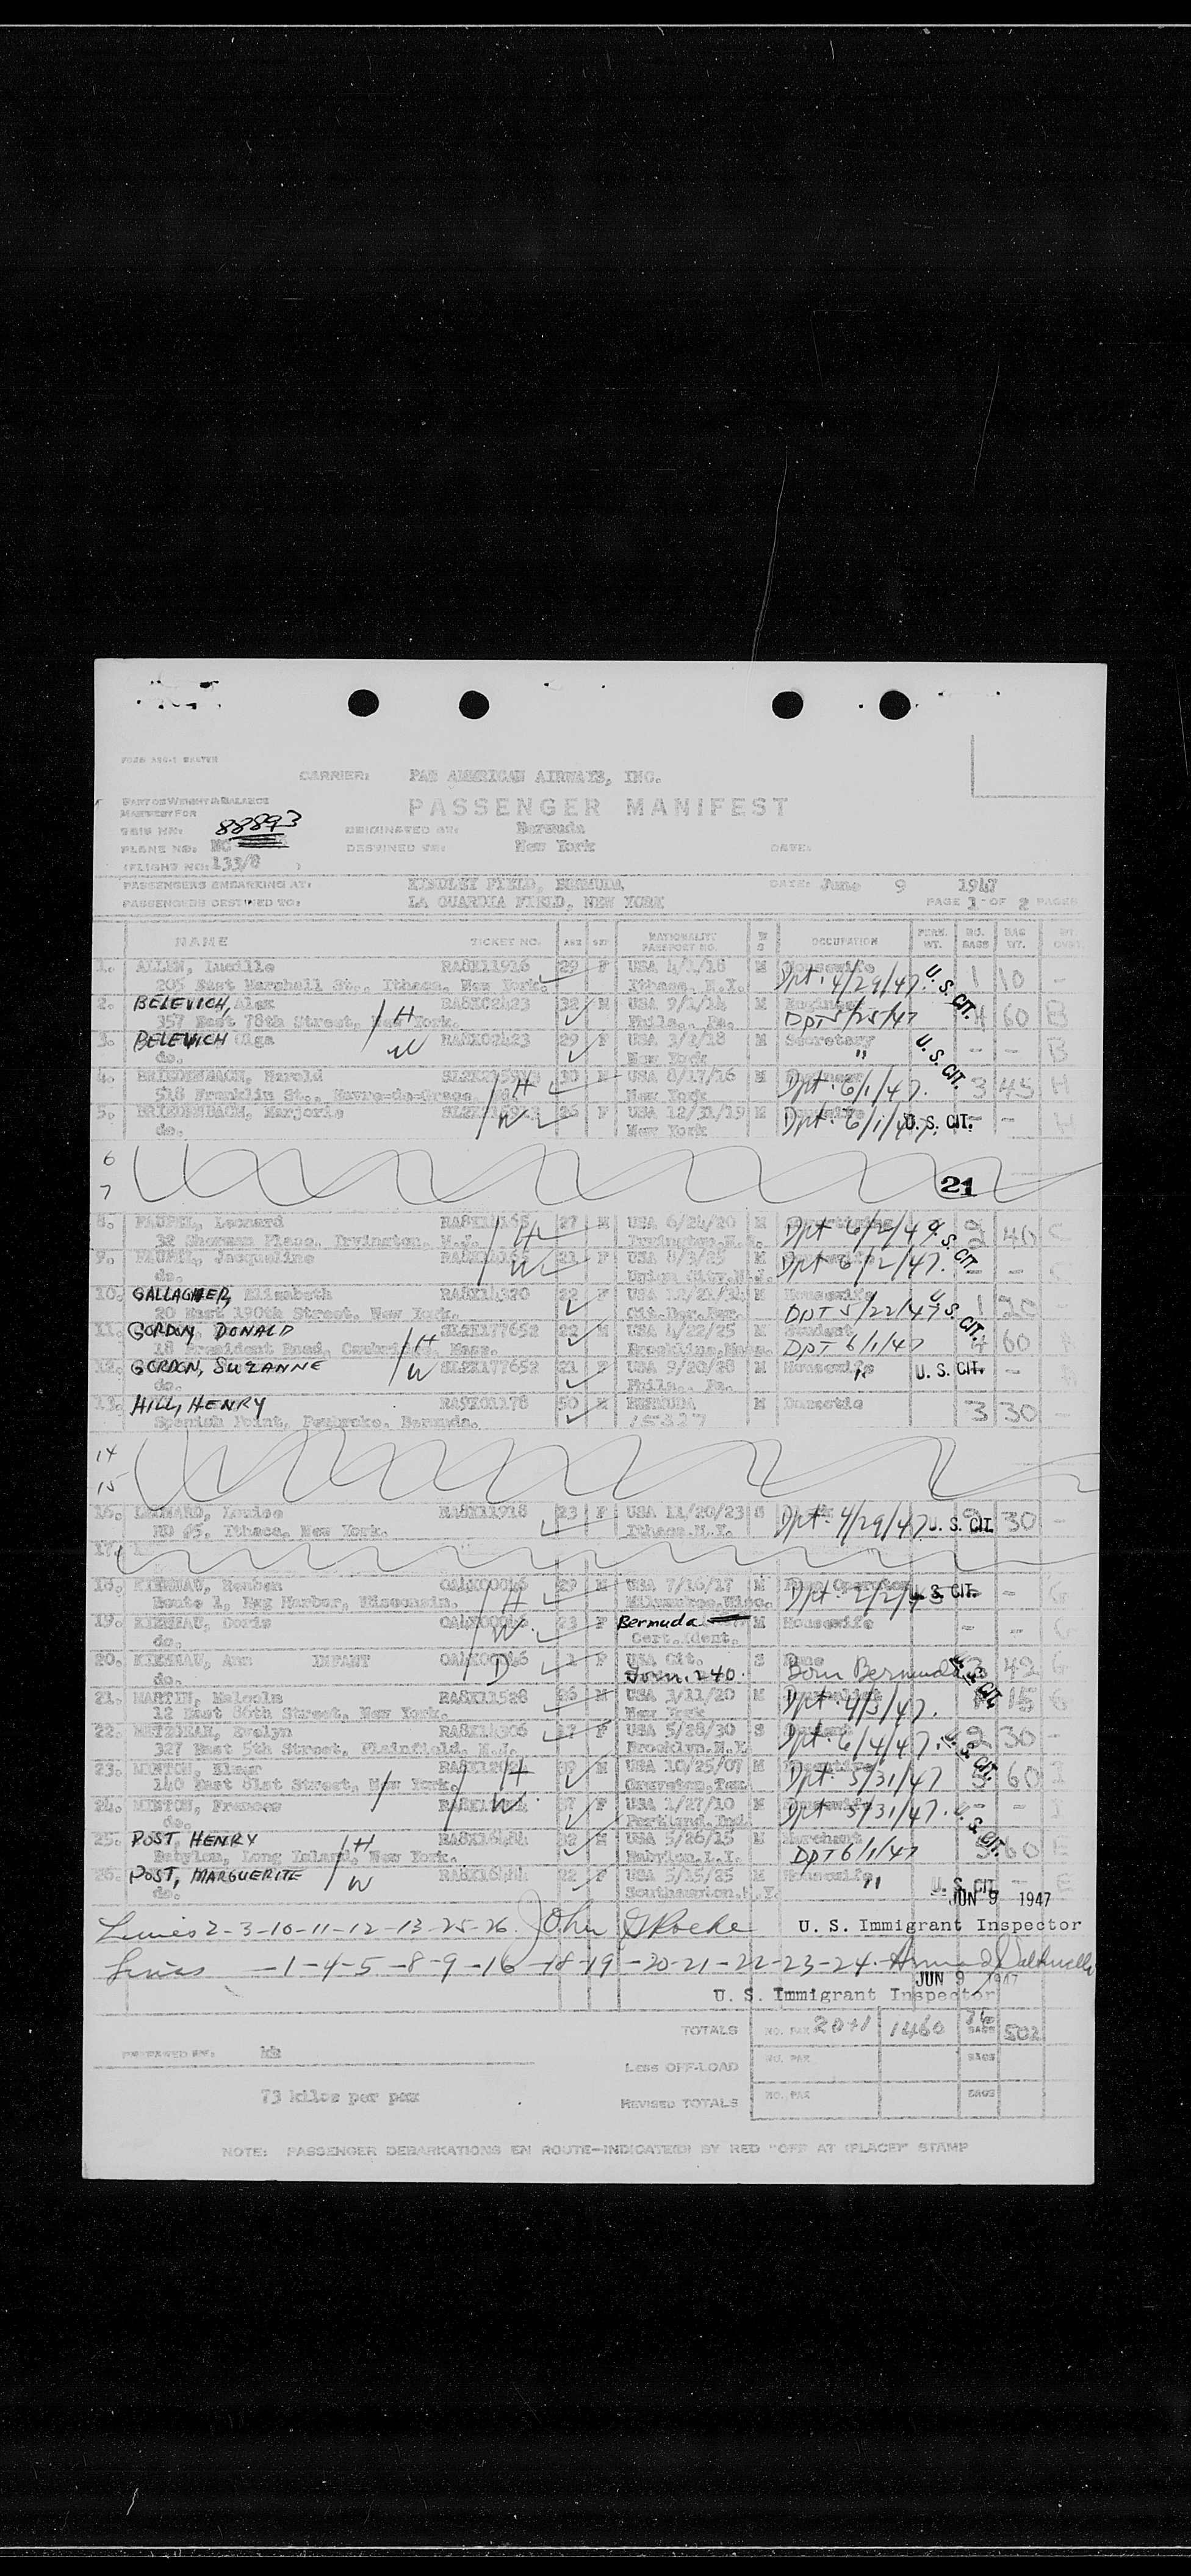 FORM ASC-1 MASTER
CARRIER: PAN AMERICAN AIRWAYS, INC.
PART OF WEIGHT & BALANCE
MANIFEST FOR
PASSENGER MANIFEST
88893
ORIGINATED BY: Bermuda
PLANE NO: NC
DESTINED TO: New York
DATE:
(FLIGHT NO: 133/8 )
PASSENGERS EMBARKING AT: KINDLEY FIELD, BERMUDA DATE: June 9 1947
PASSENGERS DESTINED TO: LA GUARDIA FIELD, NEW YORK PAGE 1 OF 2 PAGES
NAME TICKET NO. AGE SEX NATIONALITY PASSPORT NO. OCCUPATION PERS. WT. NO. BAGS BAG WT.
1. ALLEN, Lucille RA8K11916 29 F USA 4/1/18 M Housewife U. S. CIT. 1 10 -
205 East Marshall St., Ithaca, New York. Ithaca, N.Y. Dpt. 4/29/47
2. BELEVICH, Alex / H RA8K02423 32 M USA 9/1/14 M Engineer 4 60 B
357 East 78th Street, New York. Phila., Pa. DPT 5/25/47
3. BELEVICH Olga W RA8K02423 29 F USA 3/2/18 M Secretary U. S. CIT. - - B
do. New York "
4. BRIEDENBACH, Harold / H M USA 8/17/16 M 3 45 H
518 Franklin St., Havre-de-Grace New York Dpt. 6/1/47.
5. BRIEDENBACH, Marjorie / W 26 F USA 12/31/19 M U. S. CIT. - - H
do. New York Dpt. 6/1/47
6
7
21
8. FAUPEL, Leonard / H 27 M USA 6/24/20 M 2 40 C
32 Sherman Place, Irvington, N.J. Irvington, N.J. Dpt 6/2/47
9. FAUPEL, Jacqueline / W 21 F USA 8/3/25 M U. S. CIT. - -
do. Union City, N.J. Dpt 6/2/47.
10. GALLAGHER, Elizabeth RA8K14320 F M Housewife U. S. CIT. 1 20 -
20 East 190th Street, New York. DPT 5/22/47
11. GORDON, DONALD / H SL2K177652 22 M USA 4/22/25 M Student 4 60
18 President Road, Cambridge, Mass. Brookline, Mass. DPT 6/1/47
12. GORDON, SUZANNE / W SL2K177652 21 F USA 9/20/28 M Housewife " U. S. CIT. - -
do. Phila., Pa.
13. HILL, HENRY 50 M BERMUDA M Domestic 3 30 -
Spanish Point, Pembroke, Bermuda.
14
15
16. LEONARD, Louise RA8K11918 23 F USA 11/20/23 S 2 30 -
RD #5, Ithaca, New York. Ithaca, N.Y. Dpt. 4/29/47 U. S. CIT.
17.
18. KIEHNAU, Reuben / H 29 M USA 7/16/17 M U. S. CIT. - - G
Route 1, Egg Harbor, Wisconsin. Milwaukee, Wisc. Dpt. 2/2/4
19. KIEHNAU, Doris / W 23 F Bermuda M Housewife - -
do. Cert. Ident.
20. KIEHNAU, Ann INFANT / D F USA Cit. S None 3 42 G
do. Form. 240. Born Bermuda U. S. CIT.
21. MARTIN, Malcolm RA8K11528 26 M USA 3/11/20 M 1 15 G
12 East 86th Street, New York. New York Dpt. 4/3/47.
22. METZLEAR, Evelyn RA8K14306 17 F USA 5/28/30 S 2 30 -
327 East 5th Street, Plainfield, N.J. Brooklyn, N.Y. Dpt. 6/4/47. U. S. CIT.
23. MINTON, Elmer / H 39 M USA 10/25/07 M 5 60 I
140 East 81st Street, New York. Dpt. 5/31/47
24. MINTON, Frances / W 37 F USA 1/27/10 M Housewife - -
do. Portland, Ind. Dpt 5/31/47. U. S. CIT.
25. POST, HENRY / H RA8K16484 32 M USA 5/26/15 M Merchant 60 E
Babylon, Long Island, New York. Babylon, L.I. DPT 6/1/47
26. POST, MARGUERITE / W RA8K16484 22 F USA 5/15/25 M Housewife " U. S. CIT. - E
do. Southampton, N.Y. JUN 9 1947
Lines 2-3-10-11-12-13-25-26. John G Roche U. S. Immigrant Inspector
Lines -1-4-5-8-9-16-18-19-20-21-22-23-24.
JUN 9 1947
U. S. Immigrant Inspector
TOTALS NO. PAX 20+1 1460 BAGS 502
PREPARED BY: LESS OFF-LOAD NO. PAX BAGS
73 kilos per pax REVISED TOTALS NO. PAX BAGS
NOTE: PASSENGER DEBARKATIONS EN ROUTE—INDICATED BY RED "OFF AT (PLACE)" STAMP